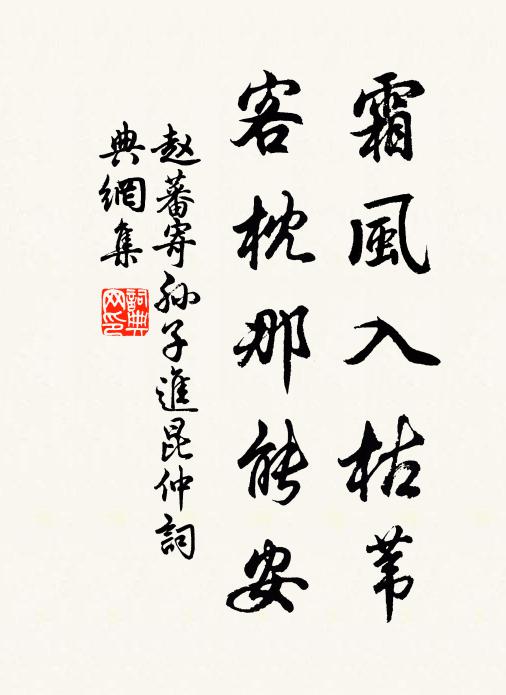 霜風入枯苇
客枕那能安
赵蕃寄孙子進昆仲詞
典網集
詞典网印